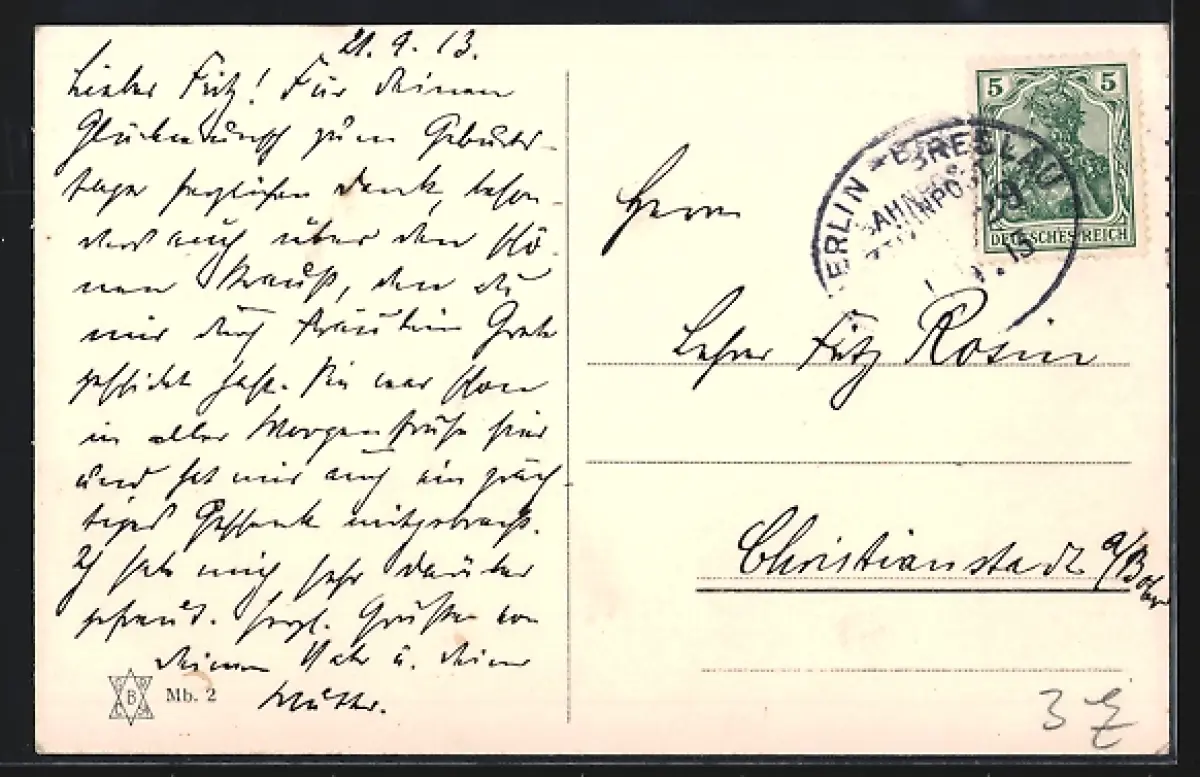 21. 9. 13.
Lieber Fritz! Für deinen
Glückwunsch zum Geburts-
tage herzlichen Dank, beson-
ders auch über den schö-
nen Strauß, den du
mir durch Fräulein Grete
geschickt hast. Sie war schon
in aller Morgenfrühe hier
und hat mir auch ein präch-
tiges Geschenk mitgebracht.
Ich habe mich sehr darüber
gefreut. Herzl. Grüße von
deinem Vater u. deiner
Mutter.
B
Mb. 2
5 5
DEUTSCHES REICH
BERLIN - BRESLAU
BAHNPOST
Herrn
Lehrer Fritz Rosin
Christianstadt a/Bober
3